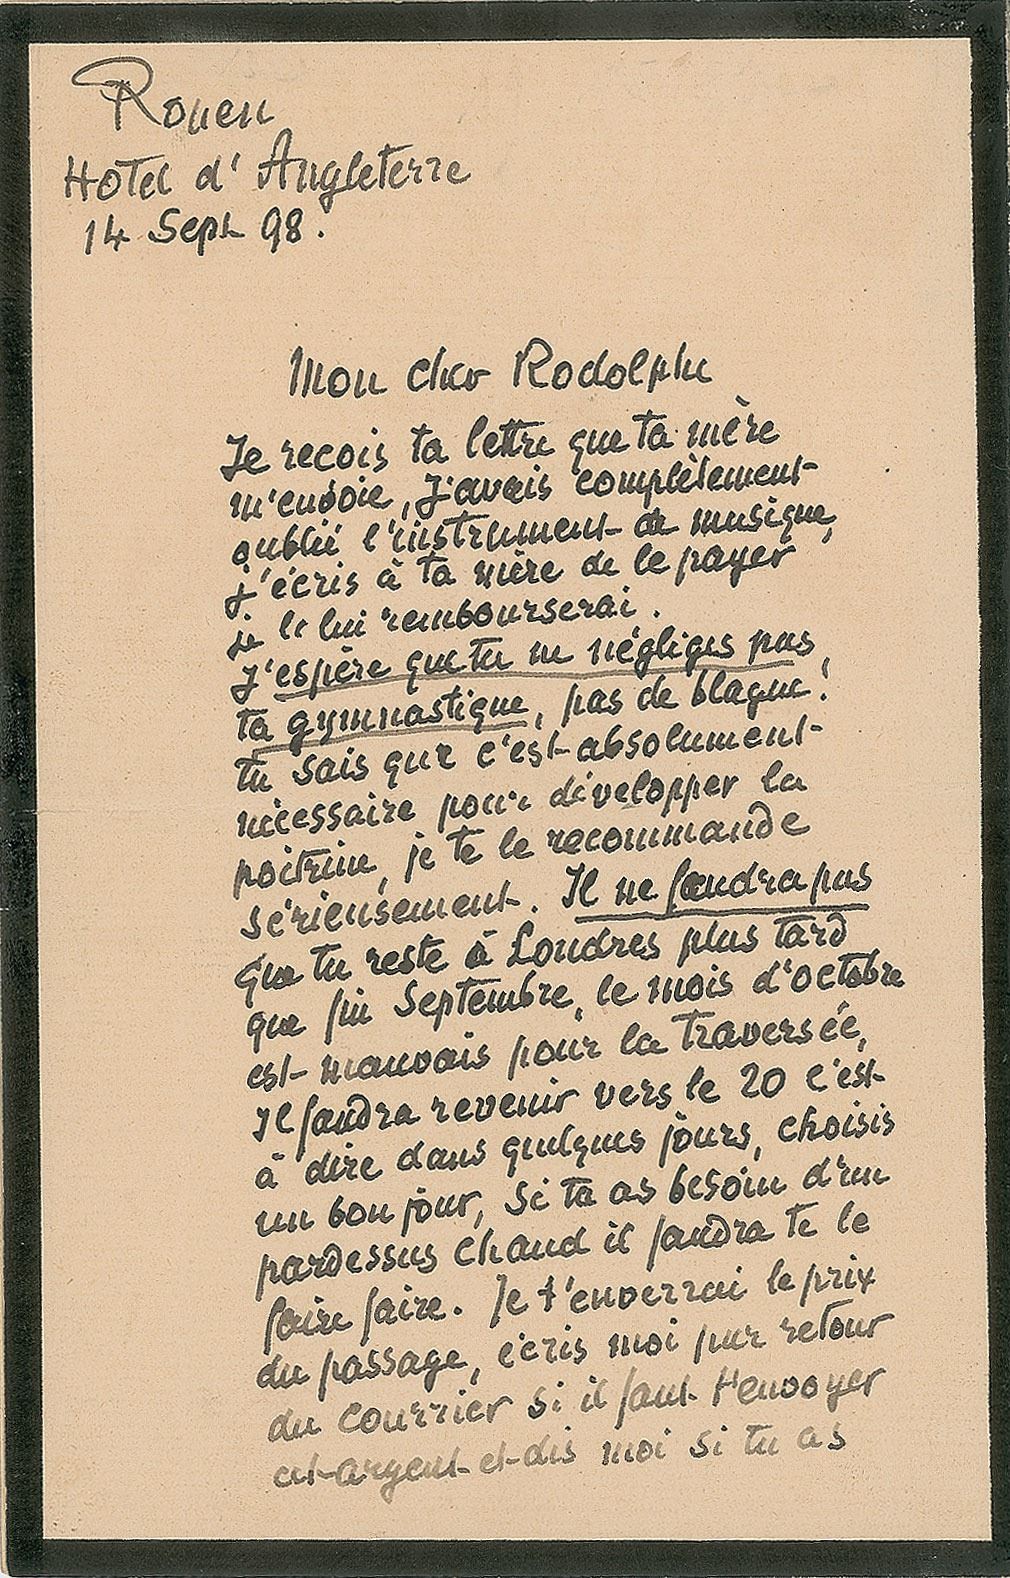 Rouen
Hotel d'Angleterre
14 Sept 98.
Mon cher Rodolphe
Je recois ta lettre que ta mère
m'envoie, J'avais complètement
oublié l'instrument de musique,
j'écris à ta mère de le payer
je le lui rembourserai.
J'espère que tu ne négliges pas
ta gymnastique, pas de blague!
tu sais que c'est absolument
nécessaire pour développer la
poitrine, je te le recommande
sérieusement. Il ne faudra pas
que tu reste à Londres plus tard
que fin Septembre, le mois d'octobre
est mauvais pour la traversée,
Il faudra revenir vers le 20 c'est
à dire dans quelques jours, choisis
un bon jour, si tu as besoin d'un
pardessus chaud il faudra te le
faire faire. Je t'enverrai le prix
du passage, écris moi par retour
du courrier si il faut t'envoyer
cet argent et dis moi si tu as